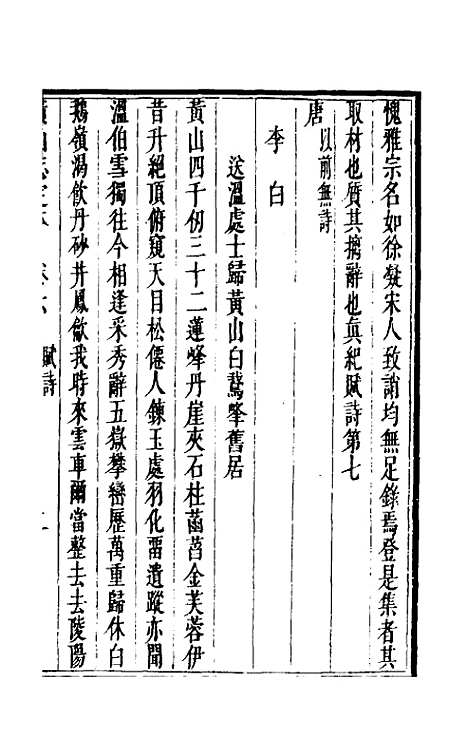 愧雅宗名如徐凝宋人致誚均無足錄焉登是集者其
取材也質其摛辭也眞紀賦詩第七
唐以前無詩
李白
送溫處士歸黃山白鵞峰舊居
黃山四千仞三十二蓮峰丹崖夾石柱菡萏金芙蓉伊
昔升絕頂俯窺天目松僊人鍊玉處羽化畱遺蹤亦聞
溫伯雪獨往今相逢采秀辭五嶽攀巒歷萬重歸休白
鵞嶺渴飲丹砂井鳳歈我時來雲車爾當整去去陵陽
黃山志定本 卷六 賦詩 二